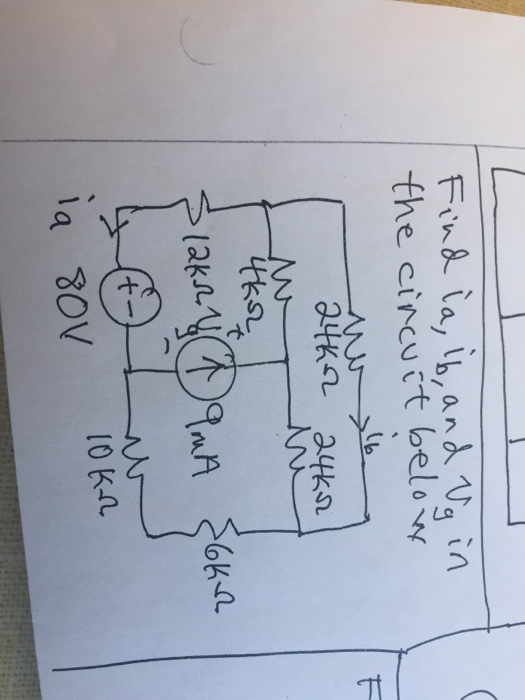 Find ia, ib, and vg in
the circuit below
24kΩ
ib
4kΩ
24kΩ
12kΩ
vg
+
-
9mA
6kΩ
+ -
ia
80V
10kΩ
F